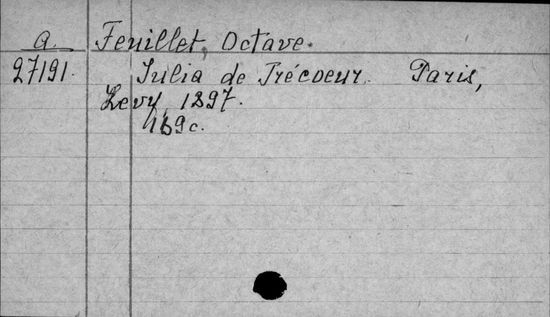 a. Feuillet, Octave.
27191. Julia de Trécoeur. Paris,
Levy, 1897.
169c.